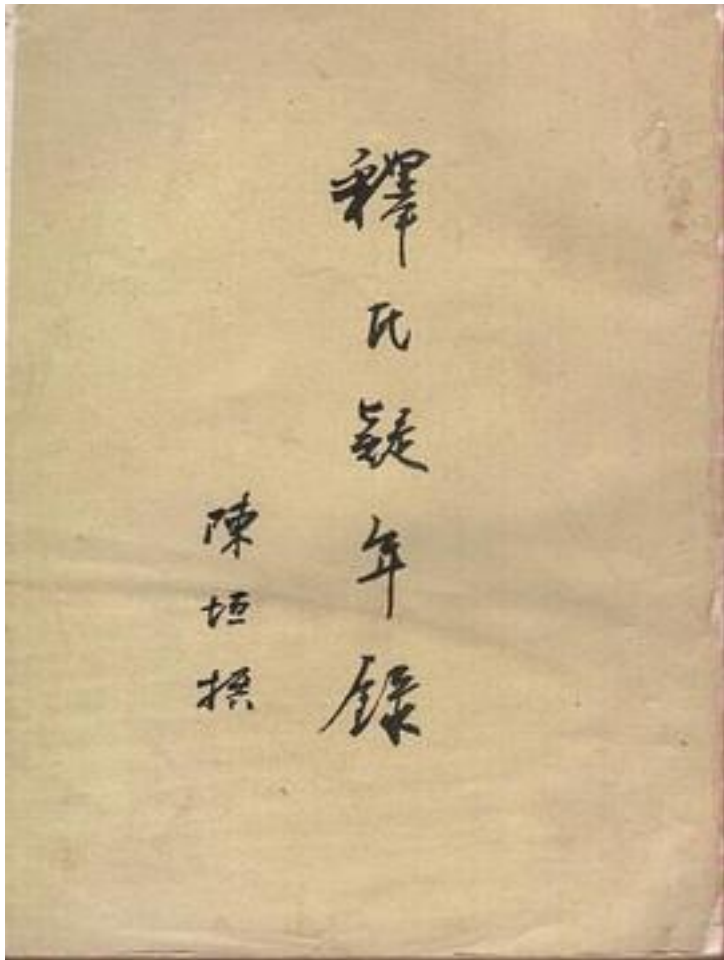 釋氏疑年錄
陳垣撰